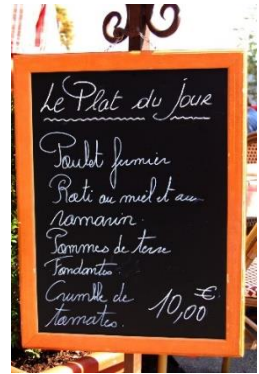 Le Plat du Jour
Poulet fermier
Roti au miel et au
romarin.
Pommes de terre
Fondantes.
Crumble de
tomates. 10,00 €